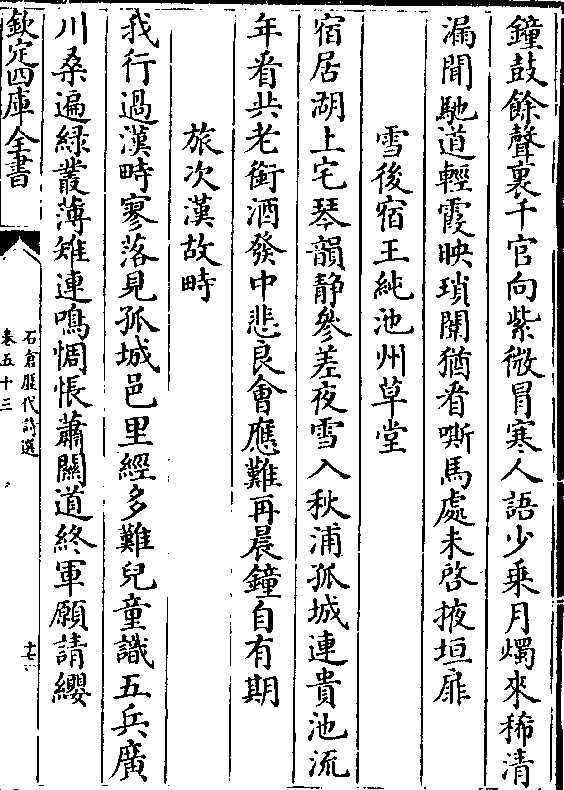 鐘鼓餘聲裏千官向紫微冒寒人語少乗月燭來稀清
漏聞馳道輕霞映瑣闈猶看嘶馬處未啓掖垣扉
雪後宿王純池州草堂
宿居湖上宅琴韻静參差夜雪入秋浦孤城連貴池流
年看共老銜酒發中悲良會應難再晨鐘自有期
旅次漢故畤
我行過漢畤寥落見孤城邑里經多難兒童識五兵廣
川桑遍緑叢薄雉連鳴惆悵蕭關道終軍願請纓
欽定四庫全書
石倉歴代詩選
卷五十三